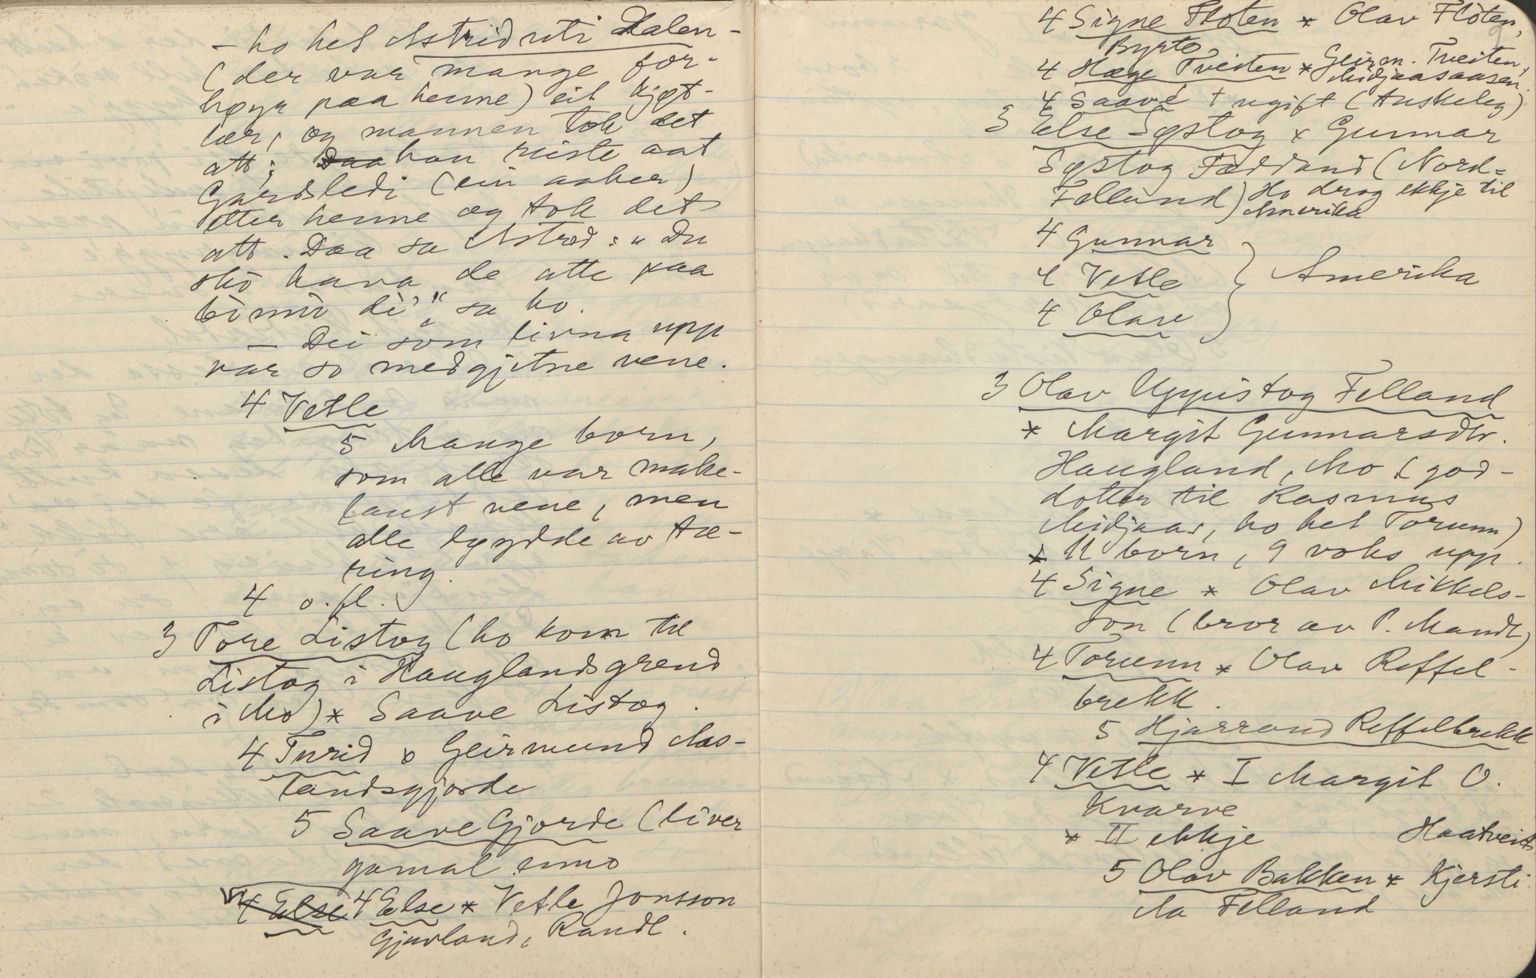 – ho het Astrid uti Dalen –
(der var mange for-
høyr paa henne) eit kjøt-
lær, og mannen tok det
att; Daa han reiste aat
Gardsledi (ein aaker)
etter henne og tok det
att. Daa sa Astrid: "Du
sko hava de atte paa
bi mi di", sa ho.
– Dei som livna upp
var so medgjetne vene.
4 Vetle
5 Mange born,
som alle var make-
laust vene, men
alle løydde av tæ-
ring.
4 o. fl.
3 Tore Listog (ho kom til
Listog i Hauglandsgrend
i Mo) * Saave Listog.
4 Turid o Geirmund Aas-
landsgjorde
5 Saave Gjorde (liver
gamal enno
4 Else 4 Else * Vetle Jonsson
Gjuvland, Randl.
4 Signe Floten * Olav Flöten,
Byrte
4 Hæge Tveiten * Geirm. Tveiten,
Midjaasaasen.
4 Saave † ugift (Auskeleg)
3 Else Systog * Gunnar
Systog Fælland (Nord-
Felland) Ho drog ekkje til
Amerika
4 Gunnar
4 Vetle
4 Olav
Amerika
3 Olav Uppistog Felland
* Margit Gunnarsdtr.
Haugland, Mo (god-
dotter til Rasmus
Midjaas, ho het Torunn)
* 11 born, 9 voks upp.
4 Signe * Olav Mikkels-
son (bror av P. Mandt)
4 Torunn * Olav Reffel-
brekk.
5 Hjarrand Reffelbrekk
4 Vetle * I Margit O.
Kvarve
* II ekkje Haatveit
5 Olav Bakken * Kjersti
Aa Felland